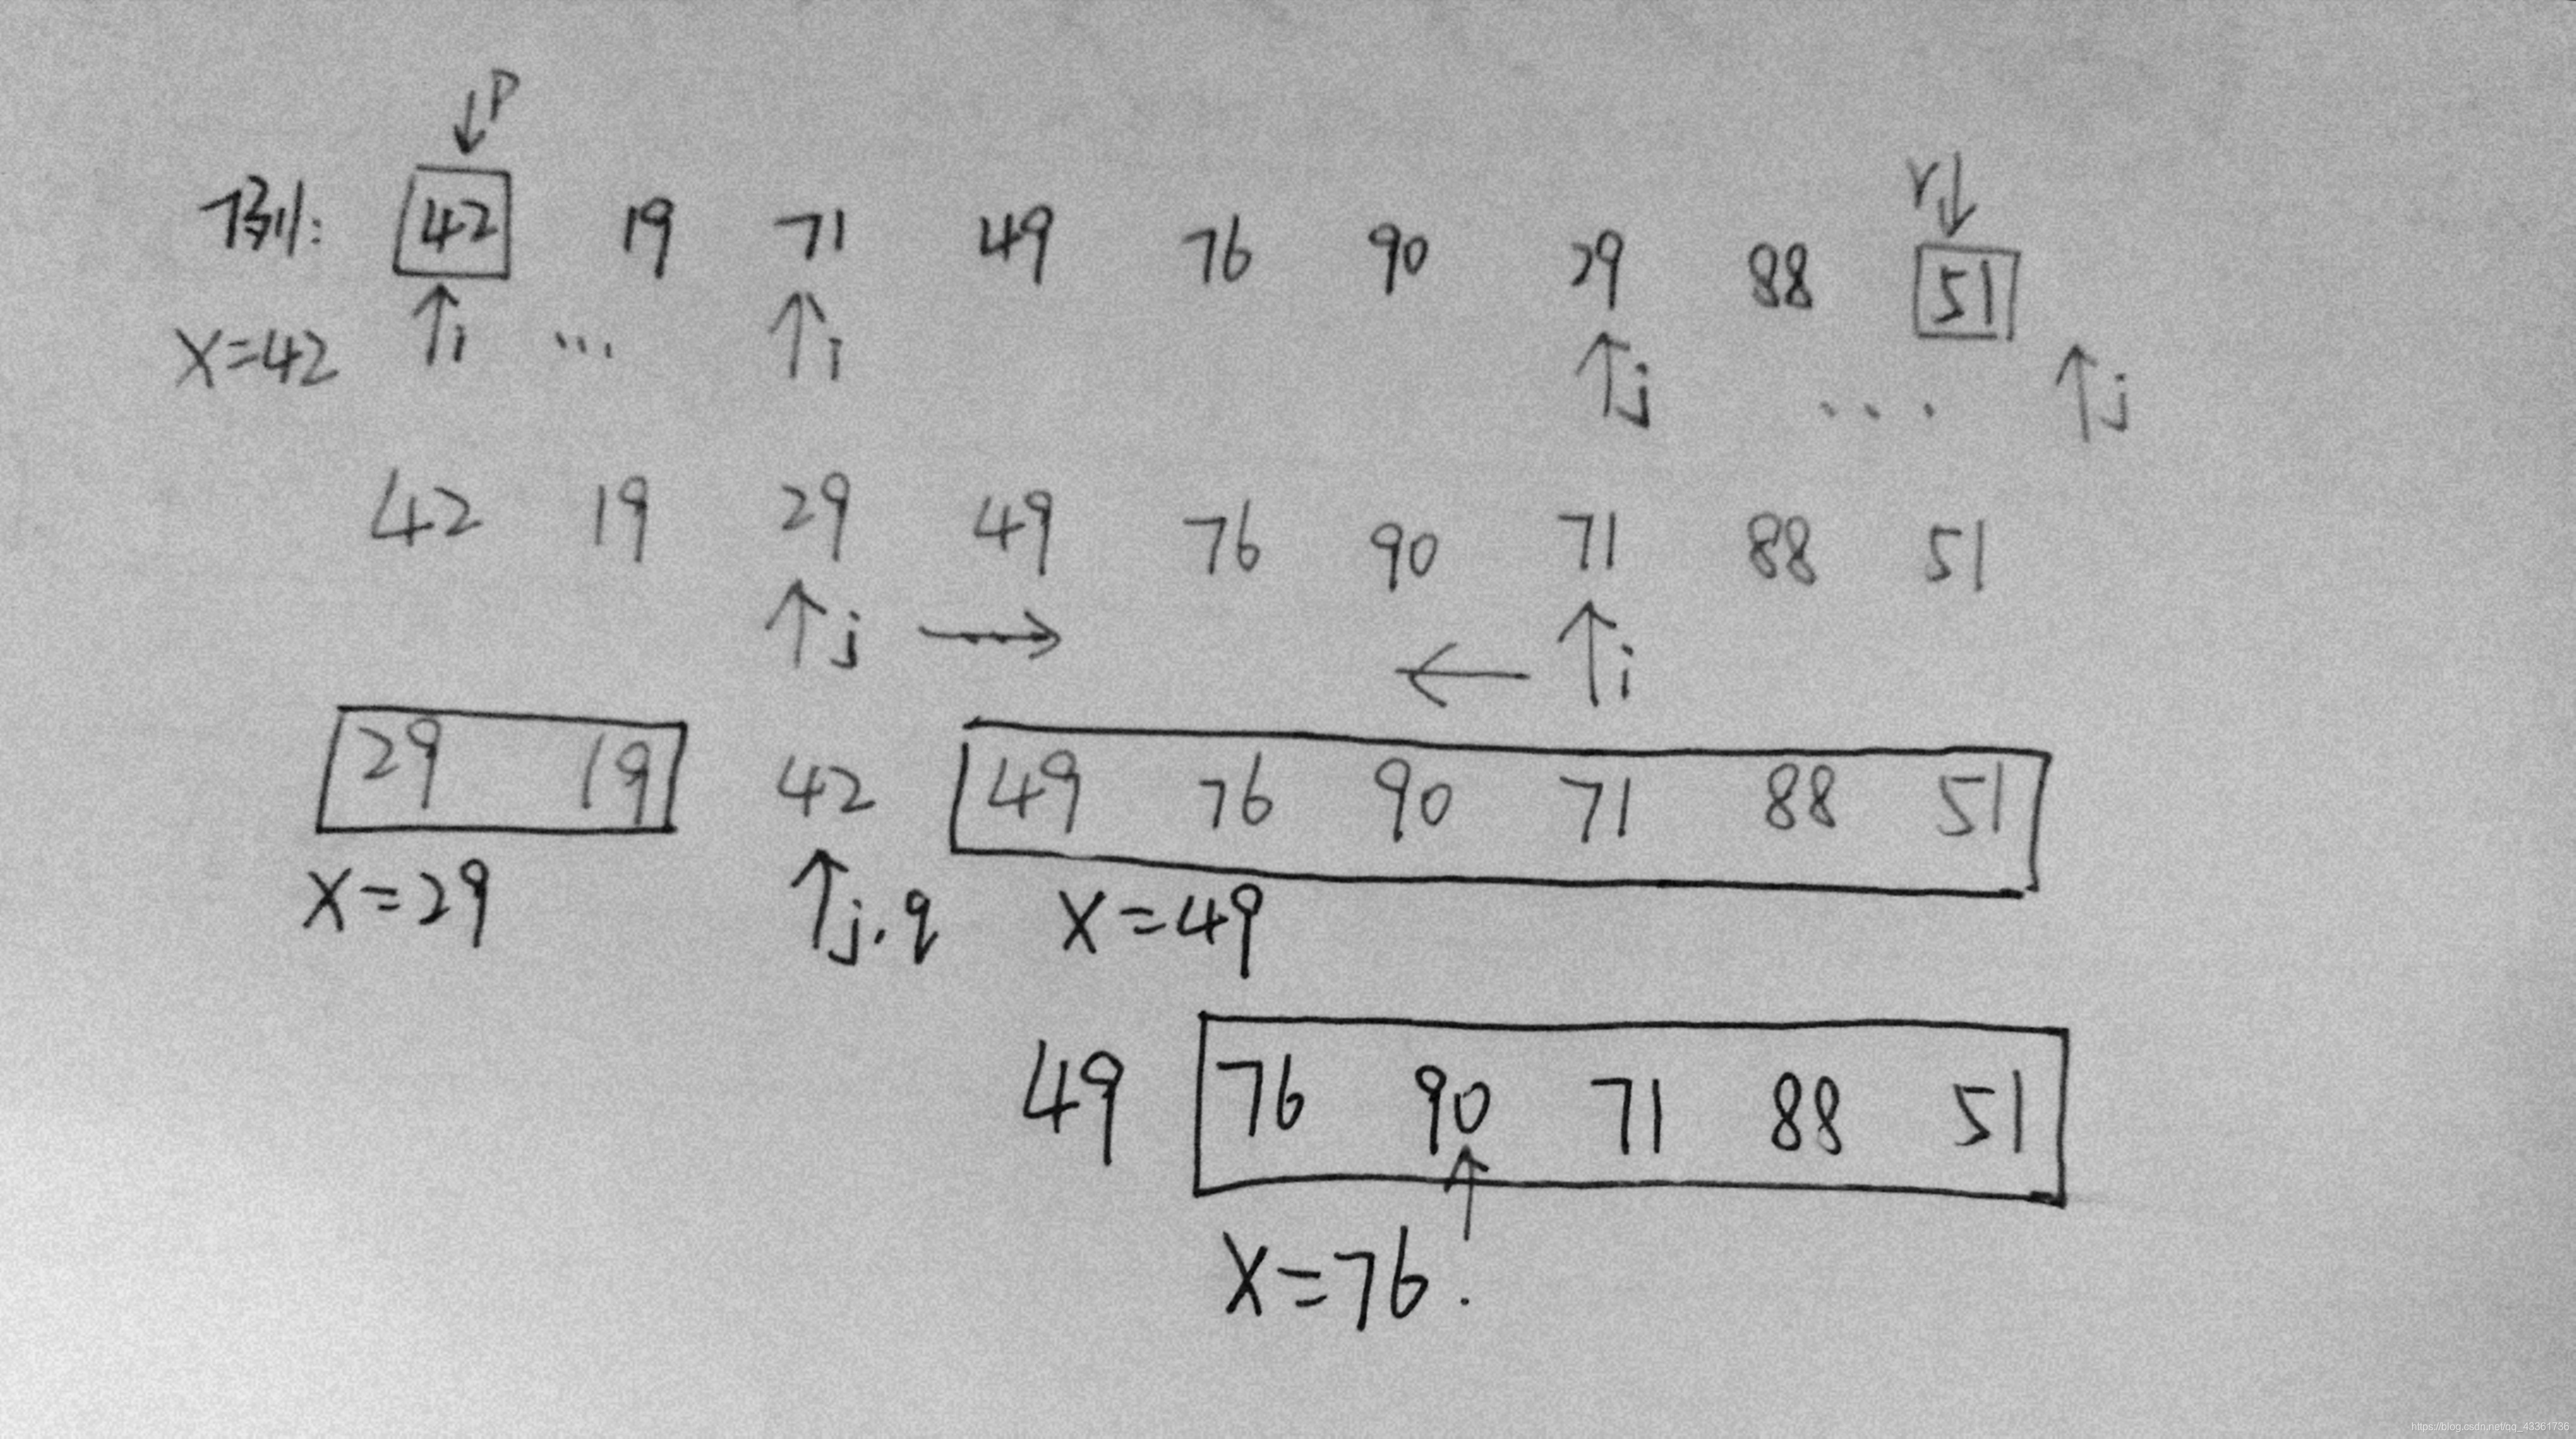 ↓P r↓
例: 42 19 71 49 76 90 29 88 51
X=42 ↑i ... ↑i ↑j ... ↑j
42 19 29 49 76 90 71 88 51
↑j → ← ↑i
29 19 42 49 76 90 71 88 51
X=29 ↑j.q X=49
49 76 90 71 88 51
↑
X=76.
https://blog.csdn.net/qq_43361736